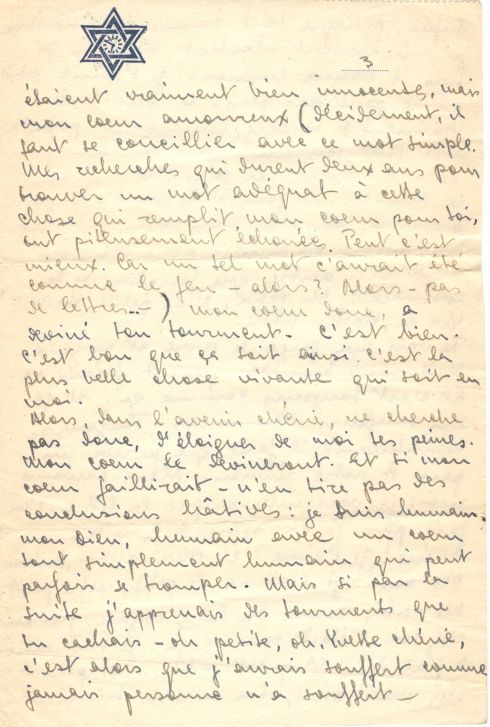 3
étaient vraiment bien innocentes, mais
mon coeur amoureux (décidement, il
faut se concillier avec ce mot simple.
Mes recherches qui durent deux ans pour
trouver un mot adéquat à cette
chose qui remplit mon coeur pour toi,
ont piteusement échouée. Peut c'est
mieux. Car un tel mot ç'aurait été
comme le feu – alors? Alors – pas
de lettres...–) mon coeur donc, a
deviné ton tourment. C'est bien.
C'est bon que ça soit ainsi. C'est la
plus belle chose vivante qui soit en
moi.
Alors, dans l'avenir chérie, ne cherche
pas donc, d'éloigner de moi tes peines.
Mon coeur le devineront. Et si mon
coeur faillirait – n'en tire pas des
conclusions hâtives: je suis humain.
mon Dieu, humain avec un coeur
tout simplement humain qui peut
parfois se tromper. Mais si par la
suite j'apprenais des tourments que
tu cachais – oh petite, oh, Yvette chérie,
c'est alors que j'aurais souffert comme
jamais personne n'a souffert –